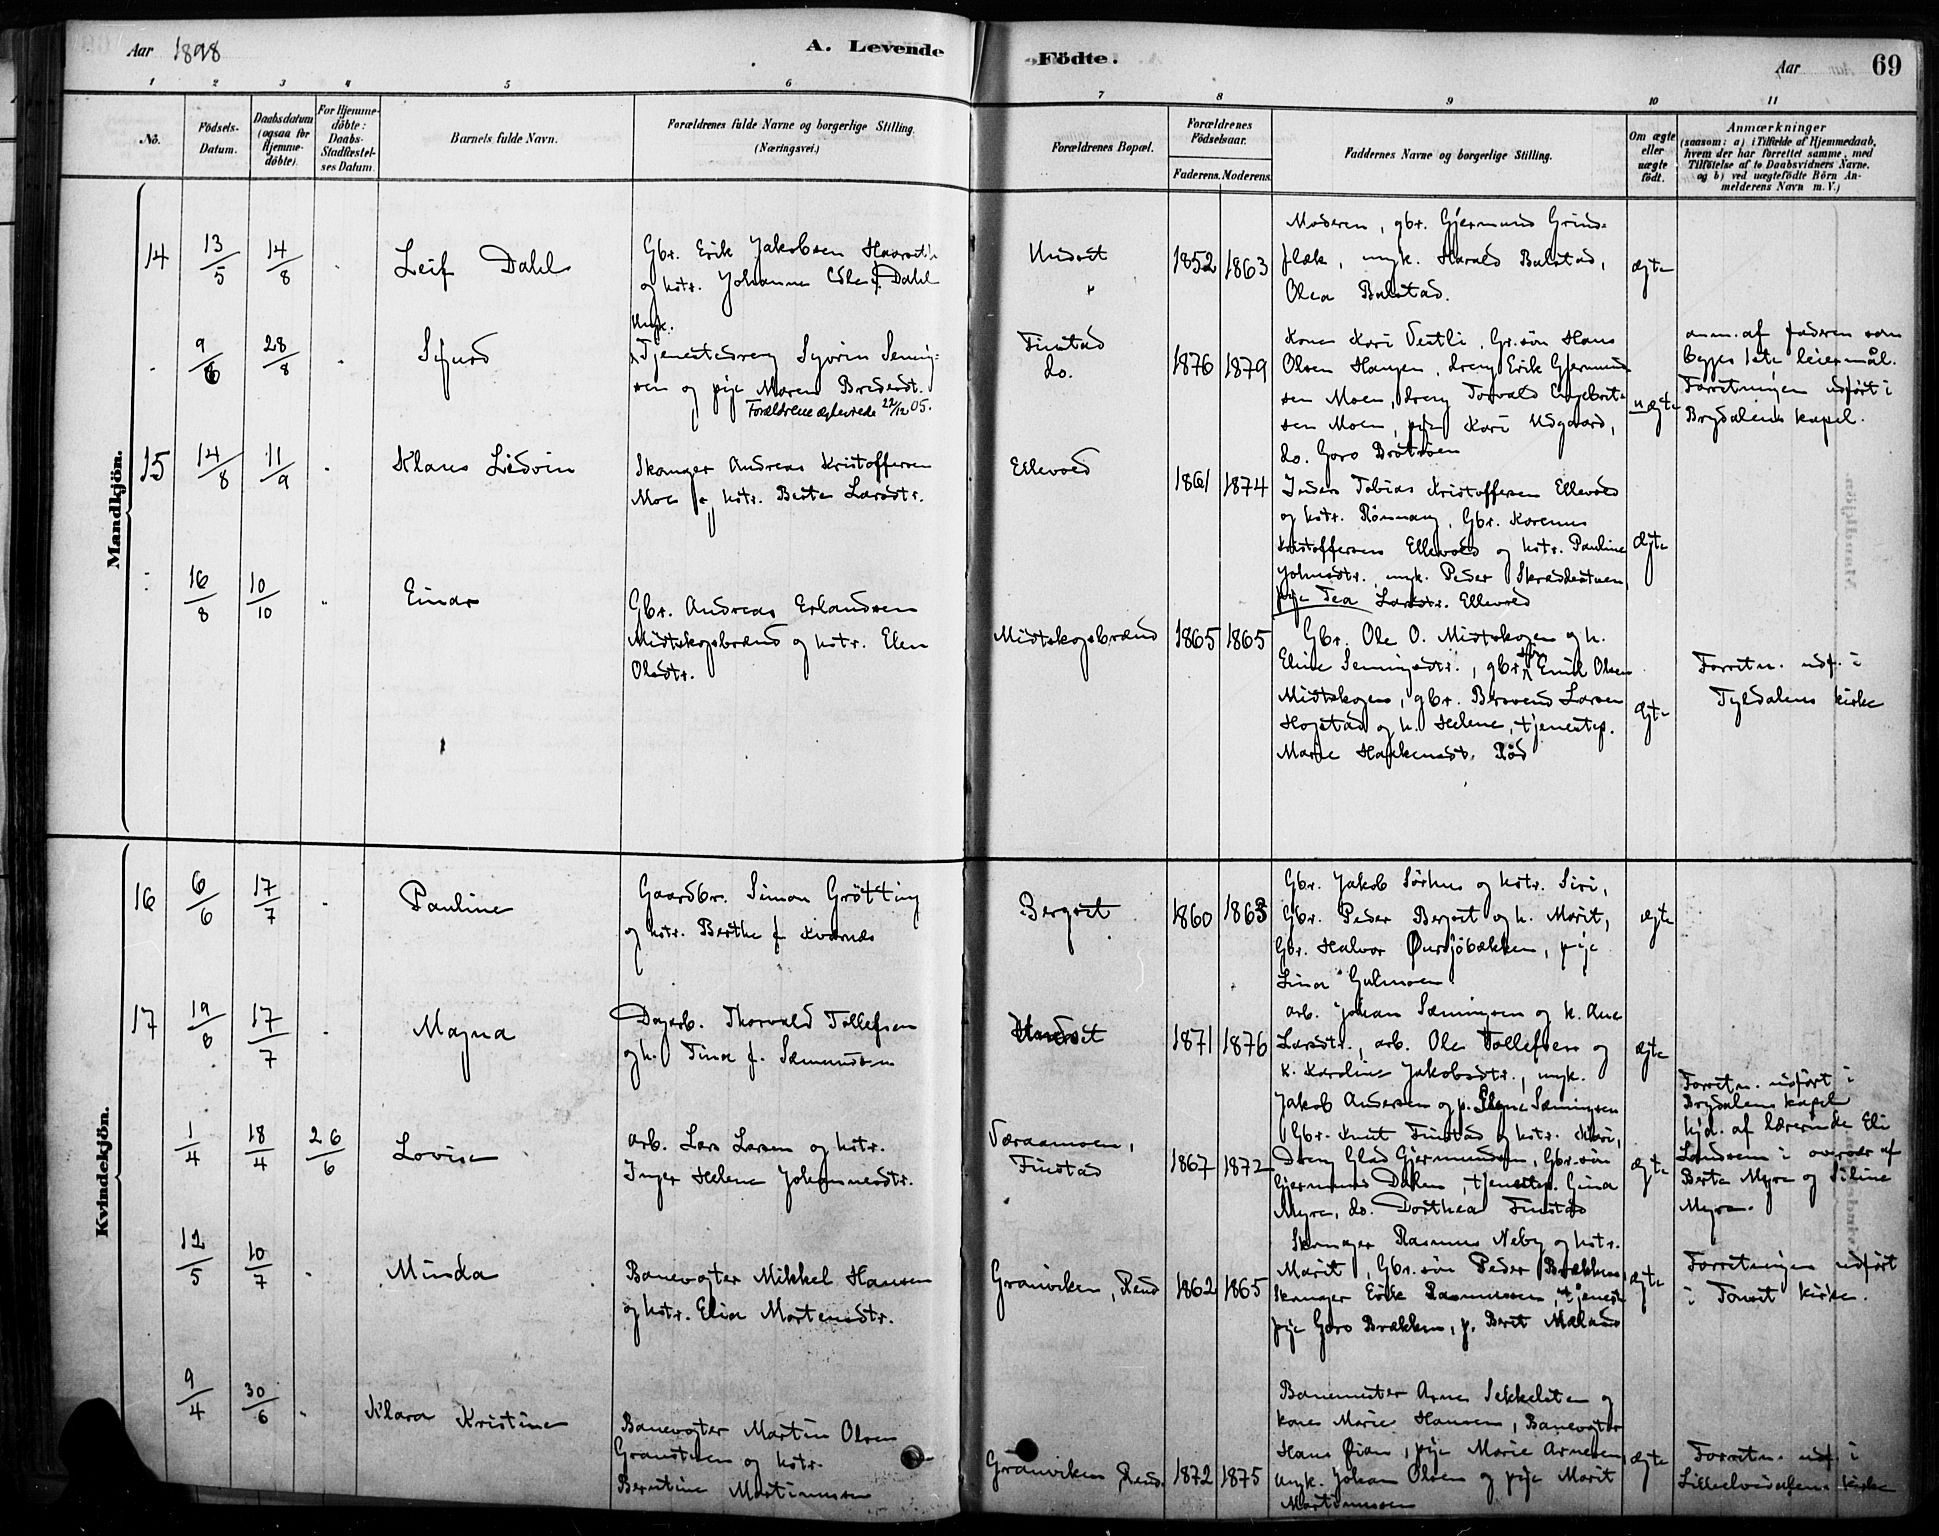 Aar 1898
A. Levende Födte.
Aar 69
1 2 3 4 5 6 7 8 9 10 11
No.
Födsels-
Datum.
Daabsdatum
(ogsaa for
Hjemme-
döbte).
For Hjemme-
döbte:
Daabs-
Stadfæstel-
ses Datum.
Barnets fulde Navn.
Forældrenes fulde Navne og borgerlige Stilling.
(Næringsvei.)
Forældrenes Bopæl.
Forældrenes
Födselsaar.
Faderens. Moderens.
Faddernes Navne og borgerlige Stilling.
Om ægte
eller
uægte
født.
Anmærkninger
(saasom: a) i Tilfælde af Hjemmedaab,
hvem der har forrettet samme, med
Tilføielse af to Daabsvidners Navne.
og b) ved uægtefödte Börn An-
melderens Navn m. V.)
Mandkjön.
14 13/5 14/8 Leif Dahl
Gbr. Erik Jakobsen
og kstr. Johanne f. Dahl
Undset
"
1852 1863
Moderen, gbr. Gjermund Grind-
flæk, ungk. Harald Bulstad,
Olea Bulstad.
ægte
9/6 28/8 Sigurd
Ungk.
Tjenestedreng Syvrin Seming-
sen og pige Maren Bredesdt.
Forældrene ægteviede 22/12 05.
Finstad
do.
1876 1879
Kone Kari Vestli, Gr.søn Hans
Olsen Haugen, dreng Erik Gjermund-
sen Moen, dreng Torvald Engebrit-
sen Moen, pige Kari Udgaard,
do. Goro Brötröen
uægte
anm. af faderen som
begges 1ste leiermål.
Forretningen udfört i
Brydalens kapel.
15 14/8 11/9 Klaus Ledvin
Skomager Andreas Kristoffersen
Moe og kstr. Berte Larsdtr.
Ellevold
1861 1874
Inders. Tobias Kristoffersen Ellevold
og kstr. Rönnaug, Gbr. Karenus
Kristoffersen Ellevold og kstr. Pauline
Johnsdtr., ungk. Peder Skræddestuen,
pige Tea Larsdtr. Ellevold
ægte
16/8 10/10 Einar
Gbr. Andreas Erlandsen
Midtskogsbrænd og kstr. Elen
Olsdtr.
Midtskogsbrænd
1865 1865
Gbr. Ole O. Midtskogen og h.
Eline Semingsdtr., gbr. søn Emil Olsen
Midtskogen, gbr. Larsen
Hogstad og h. Helene, tjenestep.
Marie Haakensdt. Röd
ægte
Forretn. udf. i
Tyldalens kirke
Kvindekjön.
16 6/6 17/7 Pauline
Gaardbr. Simon Grötting
og kstr. Berthe f. Kværnæs
Bergset
1860 1863
Gbr. Jakob Sörhus og kstr. Siri,
Gbr. Peder Bergset og h. Marit,
Gbr. Halvor Øursjöbækken, pige
Lina Gulmoen
ægte
17 19/6 17/7 Magna
Dagarb. Thorvald Tollefsen
og h. Tina f. Sæmundsen
1871 1876
arb. Johan Sæmingsen og k. Ane
Larsdtr., arb. Ole Tollefsen og
k. Karoline Jakobsdtr., ungk.
Jakob Andersen og p. Sæmingsen
ægte
1/4 18/4 26/6 Lovise
arb. Lars Larsen og kstr.
Inger Helene Johannesdtr.
Væraamoen,
Finstad
1867 1872
Gbr. Knut Finstad og kstr. Kari,
Dreng Glad Gjermundsen, Gbr.søn
Gjermund Dalen, tjenestep. Gina
Myre, do. Dorthea Finstad
ægte
Forretn. udfört i
Brydalens kapel
hjd. af lærerinde Eli
Landsem i overvær af
Berta Myre og Siline
Myre.
12/5 10/7 Minda
Banevogter Mikkel Hansen
og kstr. Elia Mortensdtr.
Granviken, Rend.
1862 1865
Skomager Rasmus Neby og kstr.
Marit, Gbr.søn Peder Brækken
Skomager Erik Rasmussen, tjeneste-
pige Goro Brækken, p. Berit Mæland
ægte
Forretningen udført
i Tönset kirke.
9/4 30/6 Klara Kristine
Banevogter Martin Olsen
Granstuen og kstr.
Berntine Martinussen
Granviken Rend.
1872 1875
Banemester Arne Sekkelsten og
kone Marie Hansen, Banevogter
Hans Øian, pige Marie Arnesen,
ungk. Johan Olsen og pige Marit
Martinussen
ægte
Forretn. udf. i
Lilleelvedalens kirke